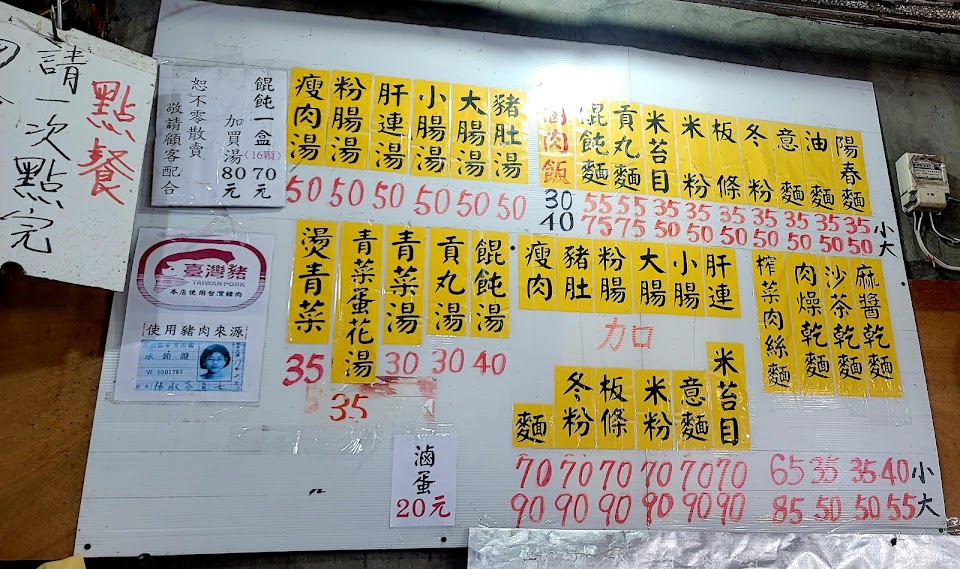 點餐
請一次點完
餛飩一盒(16顆)70元
加買湯80元
恕不零散賣
敬請顧客配合
陽春麵
油麵
意麵
冬粉
板條
米粉
米苔目
貢丸麵
餛飩麵
滷肉飯
豬肚湯
大腸湯
小腸湯
肝連湯
粉腸湯
瘦肉湯
50 50 50 50 50 50
30 55 55 35 35 35 35 35 35 35 小
40 75 75 50 50 50 50 50 50 50 大
臺灣豬
TAIWAN PORK
本店使用台灣豬肉
使用豬肉來源
餛飩湯
貢丸湯
青菜湯
青菜蛋花湯
燙青菜
35 30 30 40
35
肝連
小腸
大腸
粉腸
豬肚
瘦肉
加
米苔目
意麵
米粉
板條
冬粉
麵
70 70 70 70 70 70
90 90 90 90 90 90
麻醬乾麵
沙茶乾麵
肉燥乾麵
榨菜肉絲麵
65 35 35 40 小
85 50 50 55 大
滷蛋
20元